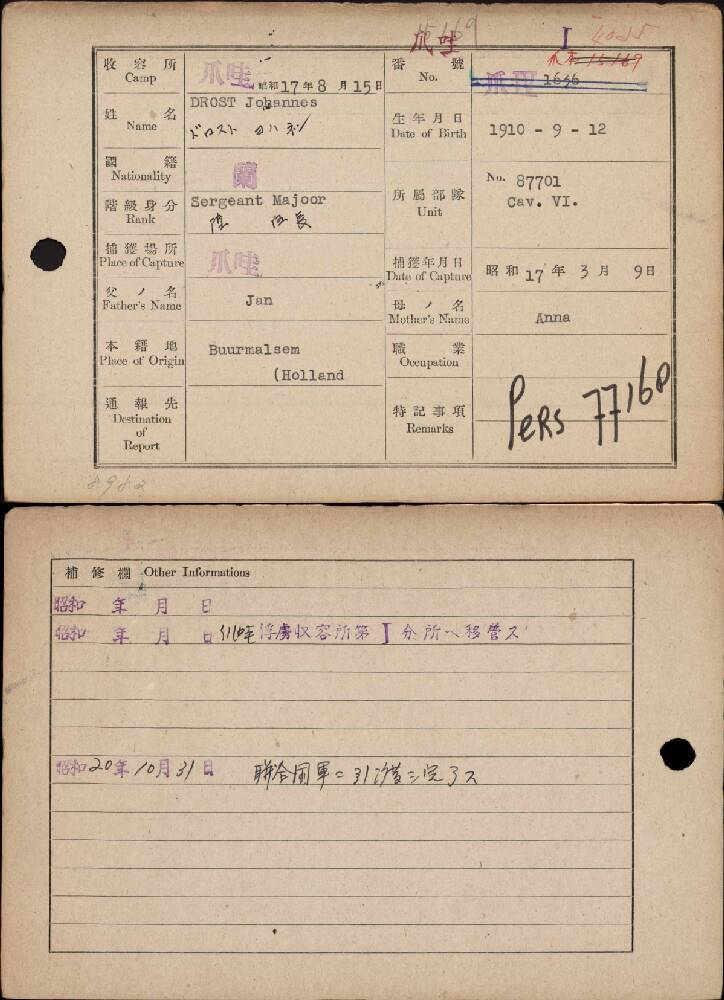 爪哇
I
収容所 Camp 爪哇 昭和17年8月15日
番號 No. 爪哇 1656
姓名 Name DROST Johannes
ドロスト ヨハネス
生年月日 Date of Birth 1910 - 9 - 12
國籍 Nationality 蘭
所屬部隊 Unit No. 87701
Cav. VI.
階級身分 Rank Sergeant Majoor
陸 曹長
捕獲場所 Place of Capture 爪哇
捕獲年月日 Date of Capture 昭和17年3月9日
父ノ名 Father's Name Jan
母ノ名 Mother's Name Anna
本籍地 Place of Origin Buurmalsem
(Holland
職業 Occupation
通報先 Destination of Report
特記事項 Remarks Pers 77168
8982
補修欄 Other Informations
昭和 年 月 日
昭和 年 月 日 爪哇俘虜収容所第I分所ヘ移管ス
昭和20年10月31日 聯合国軍ニ引渡シ完了ス